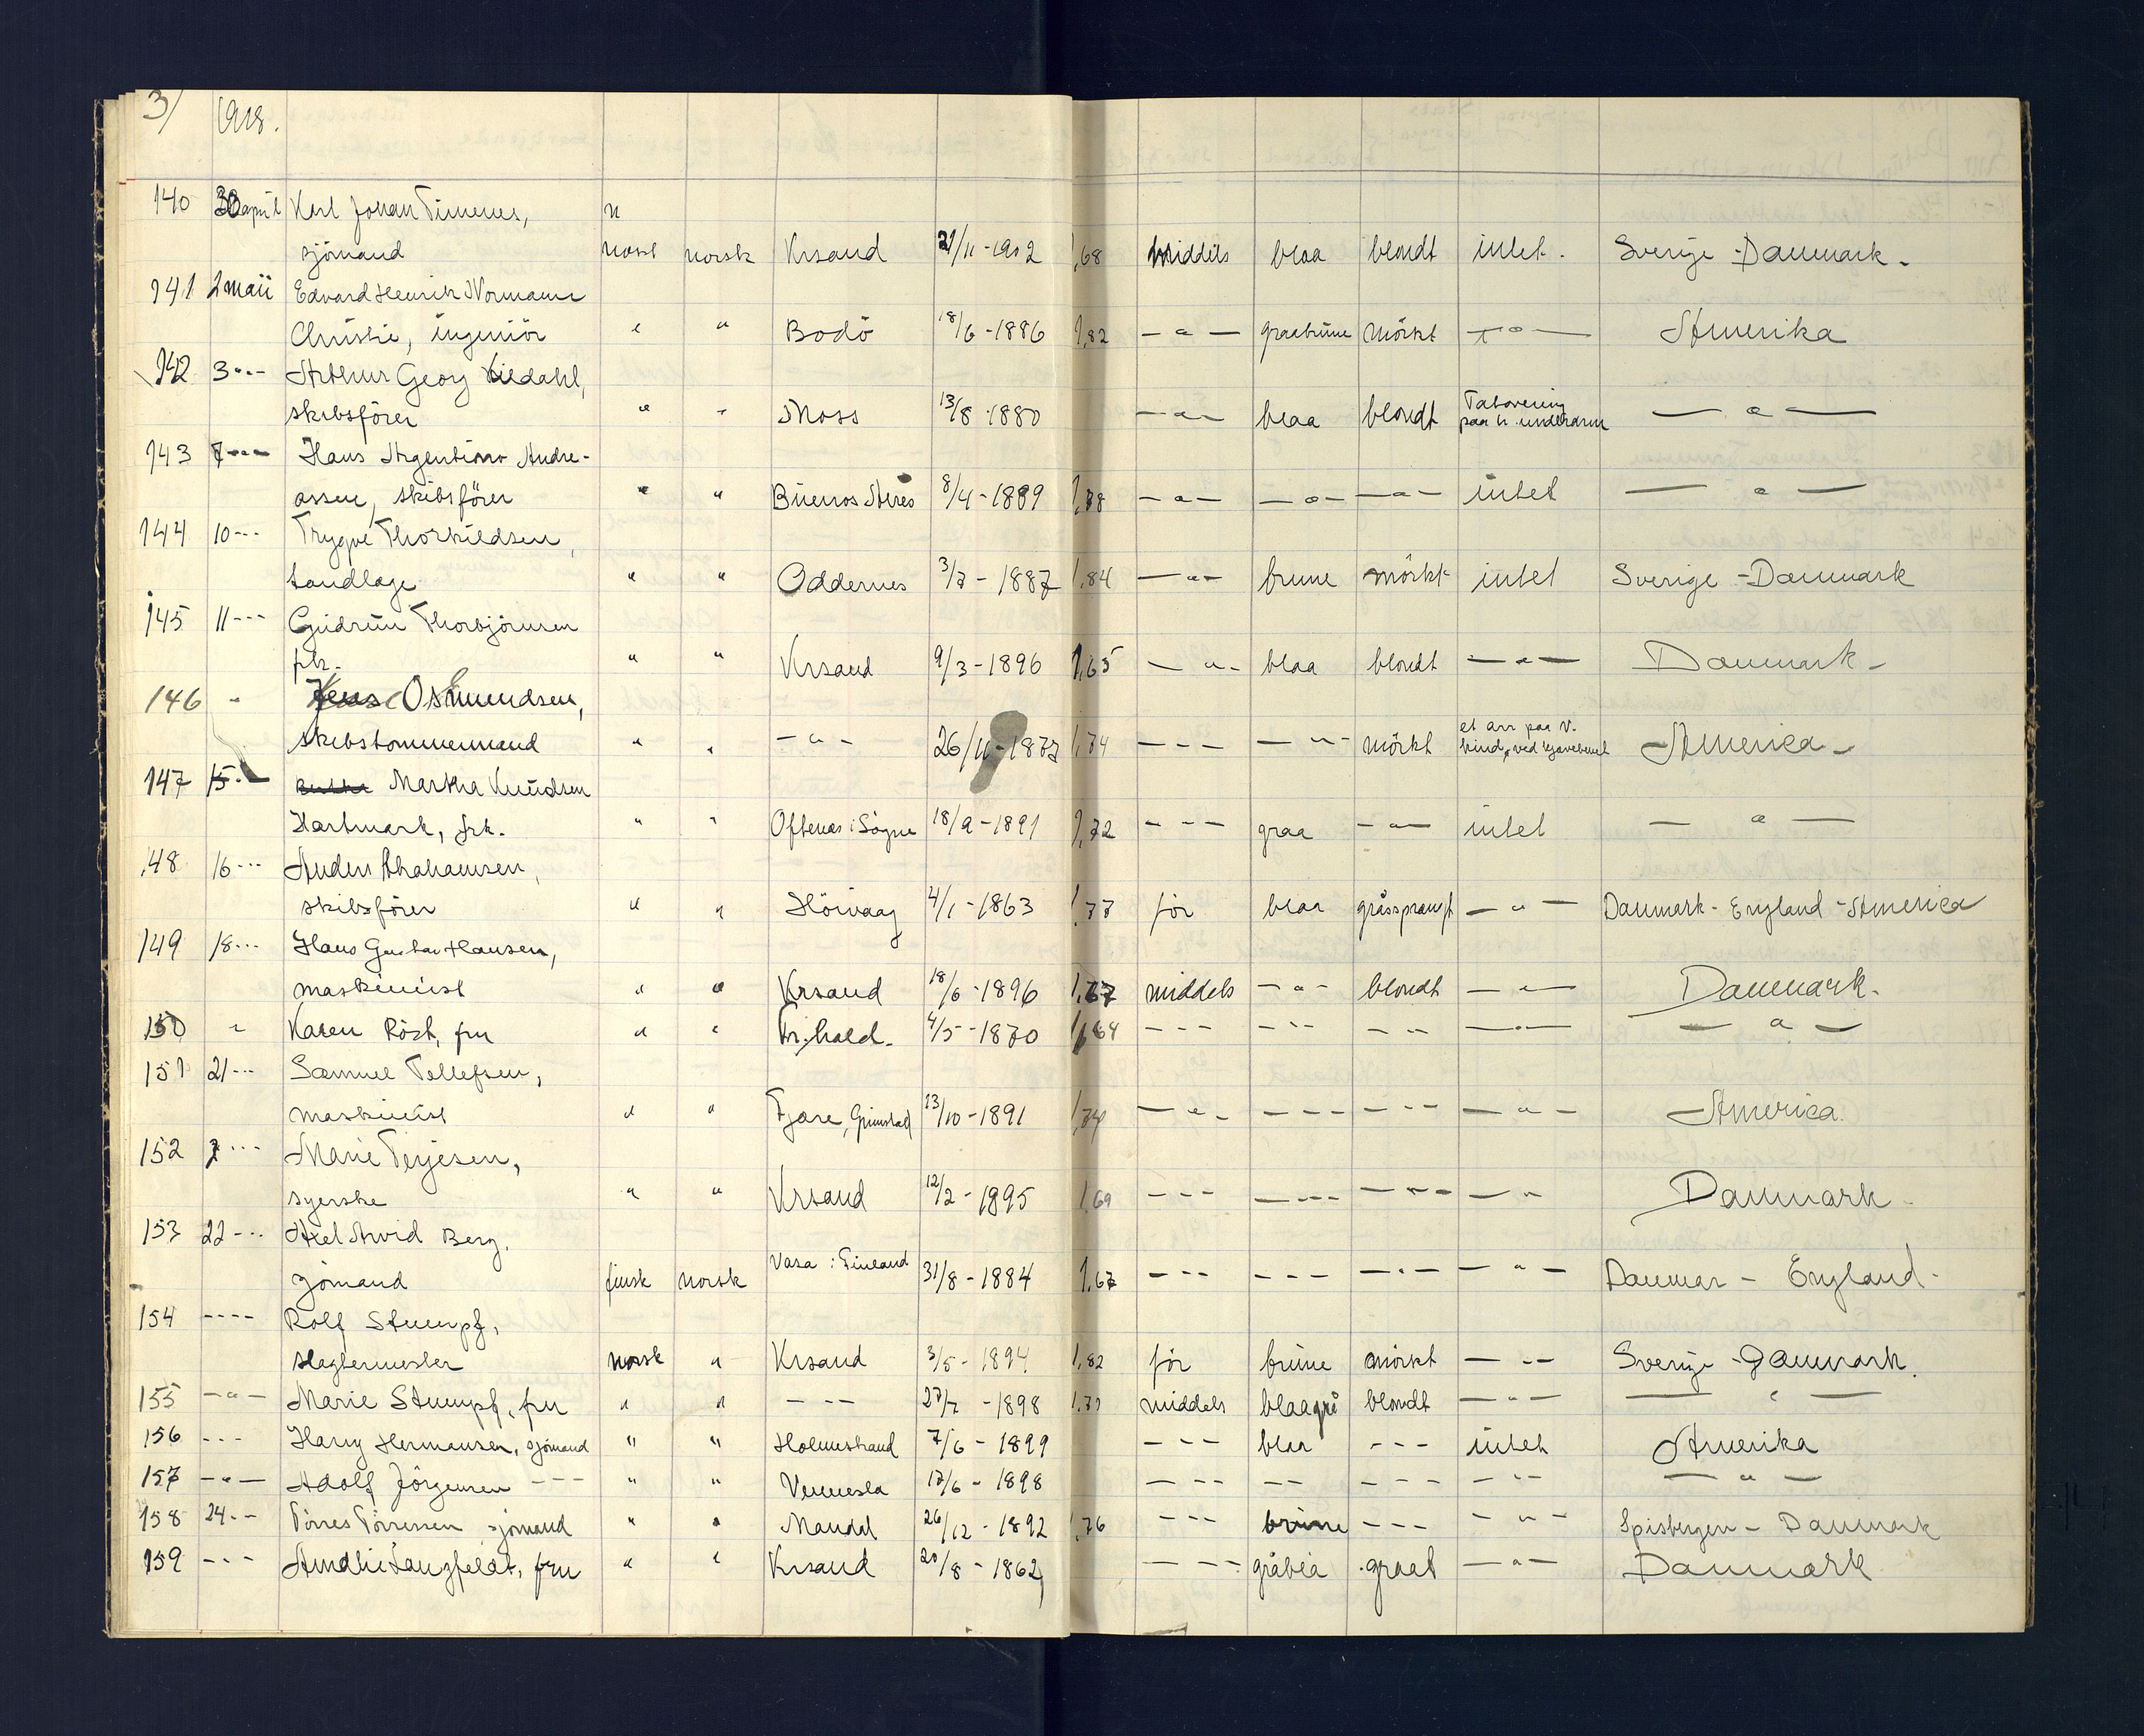 3/ 1918.
140 30 april Karl Johan
sjömand norsk norsk Krsand 21/11-1902 1,68 middels blaa blondt intet. Sverige-Danmark.
141 2 maii Edvard Henrik Normann
Christie, ingeniör " " Bodö 18/6-1886 1,82 — " — graabrune mörkt — " — Amerika
142 3 - " - Arthur Georg
skibsförer " " Moss 13/8-1880 — " — blaa blondt Tatovering paa h. underarm — " —
143 7 - " - Hans Argentino Andre-
assen, skibsförer " " Buenos Aires 8/4-1889 1,78 — " — — " — — " — intet — " —
144 10 - - - Trygve Thorkildsen,
tandlæge " " Oddernes 3/7-1887 1,84 — " — brune mörkt intet Sverige-Danmark
145 11 - - - Gudrun Thorbjörnsen
" " Krsand 9/3-1896 1,65 — " — blaa blondt — " — Danmark-
146 " Jens Osmundsen,
skibstömmermand " " — " — 26/11-1877 1,74 - - - — " — mörkt et arr paa v. ved Amerika-
147 15 - " Martha Knudsen
Hartmark, frk. " " Oftenes i Sögne 18/9-1891 1,72 - - - graa — " — intet — " —
148 16 - - - Anders Abrahamsen,
skibsförer " " Hövaag 4/1-1863 1,77 för blaa gråsprængt — " — Danmark-England-America
149 18 - - - Hans Gustav Hansen,
maskinist " " Krsand 18/6-1896 1,67 middels - " - blondt — " — Danmark.
150 " Karen Röst, fru " " Fr.hald. 4/5-1870 1,64 - - - - " - - " - — " — — " —
151 21 - - - Samuel Tellefsen,
maskinist " " Fjære, Grimstad 13/10-1891 1,74 — " - - - - - " - — " — America.
152 7 - - - Marie Terjesen,
syerske " " Krsand 12/2-1895 1,69 - - - — - - — " — — " Danmark-
153 22 - - - Axel Arvid Berg.
sjömand finsk norsk Vasa i Finland 31/8-1884 1,67 - - - - - - — " — — " — Danmar - England-
154 - - - - Rolf Stumpf,
slagtermester norsk " Krsand 3/5-1894 1,82 för brune mörkt — " — Sverige-Danmark.
155 - " - Marie Stumpf, fru " " - - - 27/7-1898 1,71 middels blaagrå blondt — " — — " —
156 - - - Harry Hermansen, sjömand " " Holmestrand 7/6-1899 - - - blaa - - - intet Amerika
157 — " — Adolf Jörgensen - - - " " Vennesla 17/6-1898 - - - - - - - - - " - — " —
158 24 - - Törres Törressen sjömand " " Mandal 26/12-1892 1,76 - - - brune - - - - " - Spisbergen - Danmark
159 - - - Amalie Langfeldt, fru " " Krsand 20/8-1862, - - - gråblå graat — " — Danmark